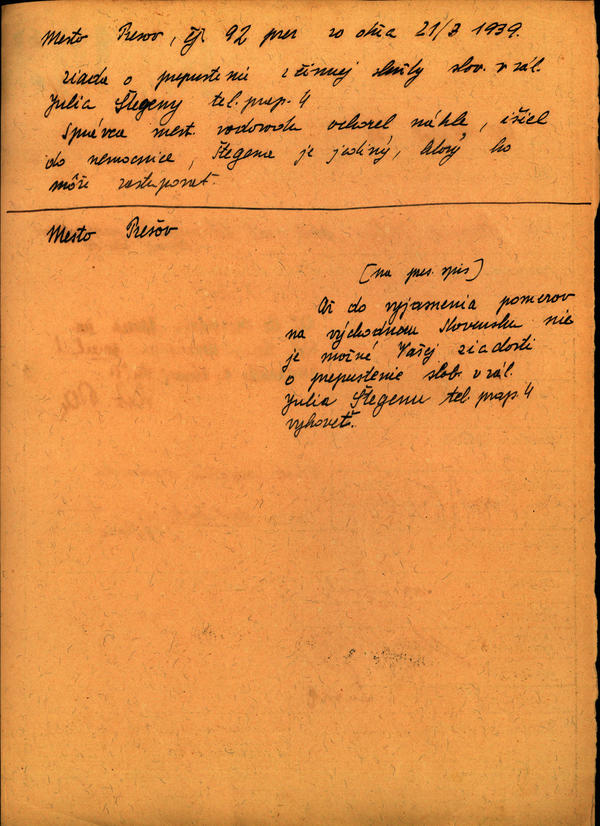 Mesto Presov, čj. 92 prez zo dňa 21/3 1939.
ziada o prepustenie z činnej služby slov. v zál.
Julia Štegeny tel. prap. 4
Správca mest. vodovodu ochorel náhle, išiel
do nemocnice, Štegena je jediný, ktorý ho
môže zastupovat.
Mesto Prešov
(na pres. spis)
Až do vyjasnenia pomerov
na východnom Slovensku nie
je možné Vašej ziadosti
o prepustenie slob. v zál.
Julia Štegenu tel. prap. 4
vyhoveť.